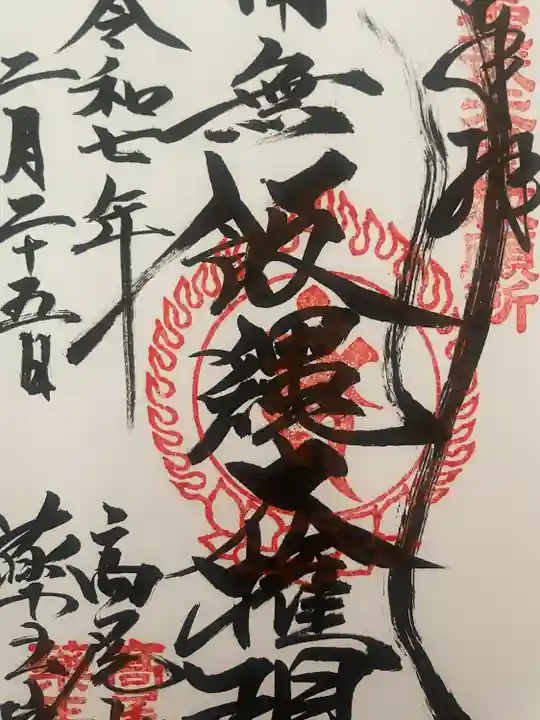 奉拝
南無飯縄大権現
令和七年
二月二十五日
高尾山
薬王